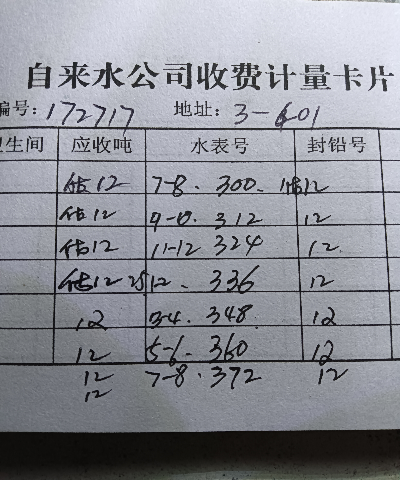 自来水公司收费计量卡片
编号:172717 地址: 3-601
卫生间 应收吨 水表号 封铅号
估12 7-8. 300. 估12
估12 9-10. 312 12
估12 11-12 324 12.
估12 336 12
12 3-4. 348 12
12 5-6. 360 12
12 7-8. 372 12
12